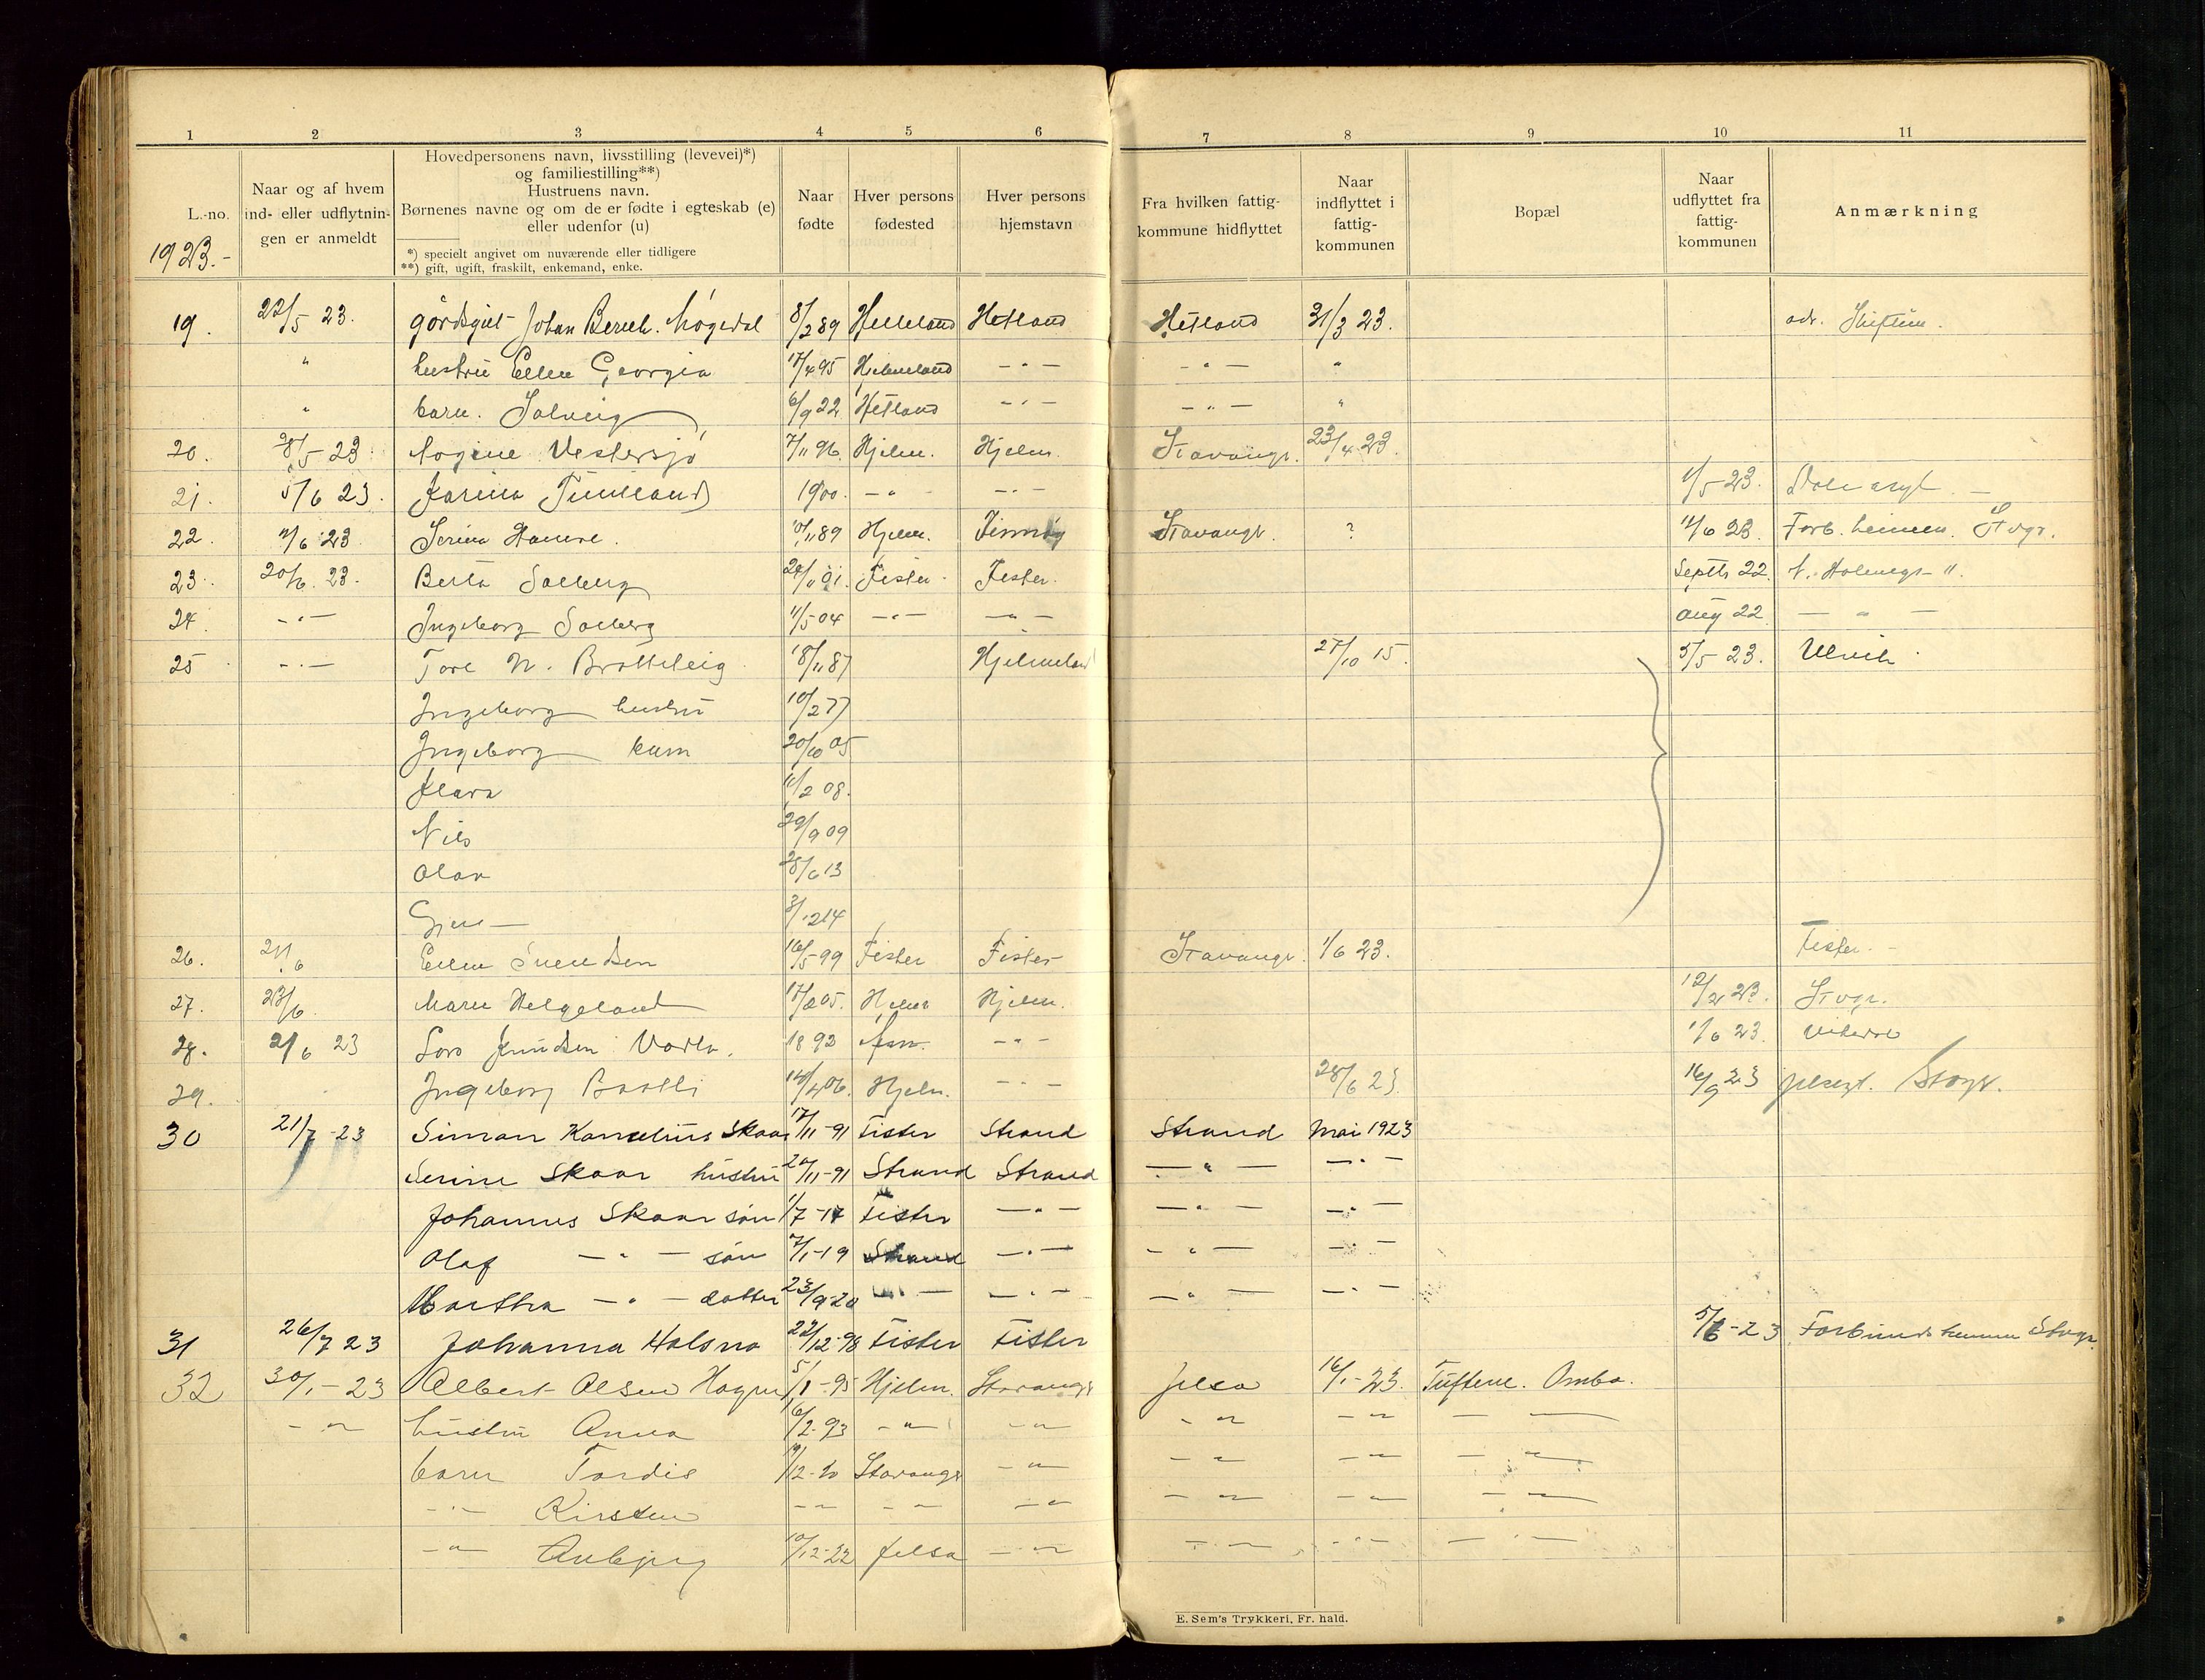 1 2 3 4 5 6 7 8 9 10 11
L.-no.
1923.-
Naar og af hvem
ind- eller udflytnin-
gen er anmeldt
Hovedpersonens navn, livsstilling (levevei)*)
og familiestilling**)
Hustruens navn.
Børnenes navne og om de er fødte i egteskab (e)
eller udenfor (u)
*) specielt angivet om nuværende eller tidligere
**) gift, ugift, fraskilt, enkemand, enke.
Naar
fødte
Hver persons
fødested
Hver persons
hjemstavn
Fra hvilken fattig-
kommune hidflyttet
Naar
indflyttet i
fattig-
kommunen
Bopæl
Naar
udflyttet fra
fattig-
kommunen
Anmærkning
19. 22/5 23. Johan 8/2 89 Helleland Hetland Hetland 31/3 23.
" hustru Ellen Georgia 17/4 95 Hjelmeland - " - - " - "
" barn. Solveig 6/9 22 Hetland - " - - " - "
20. 28/5 23. Vestersjø 7/11 96. Hjelm. Hjelm. Stavangr. 23/4 23.
21. 5/6 23. Karina 1900. - " - - " - 1/5 23.
22. 11/6 23 Serina Hamre. 10/11 89 Hjelm. Stavangr. ? 11/6 23. Forb. heimen. Stvgr.
23. 20/6. 23. Berta Solberg Fister. Fister. Septb 22.
24. - " - Ingeborg Solberg 11/5 04 - " - - " - Aug 22 - " -
25 - " - Tore N. Bratteteig 18/11 87 Hjelmeland 27/10 15. 5/5 23. Ulvik
Ingeborg hustru 10/2 77
Ingeborg barn 20/10 05
Klara 11/2 08.
Nils 29/9 09
Olav 28/6 13
3/12 14
26. 21/6 Ellen Svendsen 16/5 99 Fister Fister Stavangr. 1/6 23. Fister. -
27. 23/6. Maren Helgeland Hjelm. 12/2 23. Stvgr.
28. 21/6 23 Lars Knudsen 1893 - " - 1/6 23
29. Ingeborg 14/4 06. Hjelm. - " - 28/6 23. 16/9 23 Stvgr.
30 21/7 -23 Simon Kornelius Skaar 17/11 -91 Fister Strand Strand Mai 1923
Serine Skaar hustru 20/11 -91 Strand Strand - " - - " -
Johannes Skaar søn 1/7 -17 Fister - " - - " - - " -
Olaf - " - søn 7/1 -19 Strand - " - - " - - " -
Martha - " - datter 23/9 -20 - " - - " - - " -
31 26/7 23 Johanna Halsna 22/12 -98 Fister Fister 5/6 -23 Forbundsheimen Stvgr.
32 30/1 -23 Albert Olsen 5/1 -95 Hjelm. Stavangr Jelsa 16/1 -23. Tuftene. Ombo.
- " - hustru Anna 6/2 -93 - " - - " - - " - - " - - " -
barn Tordis Stavangr - " - - " - - " - - " -
- " - Kirsten - " - - " - - " - - " - - " - - " -
- " - Anbjørg 10/12 -22 Jelsa - " - - " - - " - - " -
E. Sem's Trykkeri, Fr. hald.